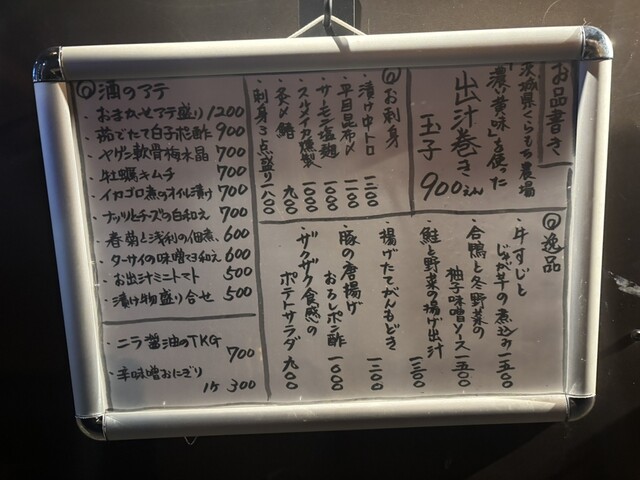 お品書き
茨城県くらもち農場
「濃い黄味」を使った
出汁巻き
玉子
900えん
◎お刺身
・漬け中トロ 一二〇〇
・平目昆布〆 一一〇〇
・サーモン塩麹 一〇〇〇
・スルメイカ燻製 一〇〇〇
・炙〆鯖 九〇〇
・刺身3点盛り 一八〇〇
◎逸品
・牛すじと
じゃが芋の煮込み 一五〇〇
・合鴨と冬野菜の
柚子味噌ソース 一五〇〇
・鮭と野菜の揚げ出汁 一三〇〇
・揚げたてがんもどき 一二〇〇
・豚の唐揚げ
おろしポン酢 一〇〇〇
・ザクザク食感の
ポテトサラダ 九〇〇
◎酒のアテ
・おまかせアテ盛り 1200
・茹でたて白子ポン酢 900
・ヤゲン軟骨梅水晶 700
・牡蠣キムチ 700
・イカゴロ煮のオイル漬け 700
・ナッツとチーズの白和え 700
・春菊と浅利の佃煮 600
・ターサイの味噌マヨ和え 600
・お出汁ミニトマト 500
・漬け物盛り合せ 500
・ニラ醤油のTKG
700
・辛味噌おにぎり
1ケ 300